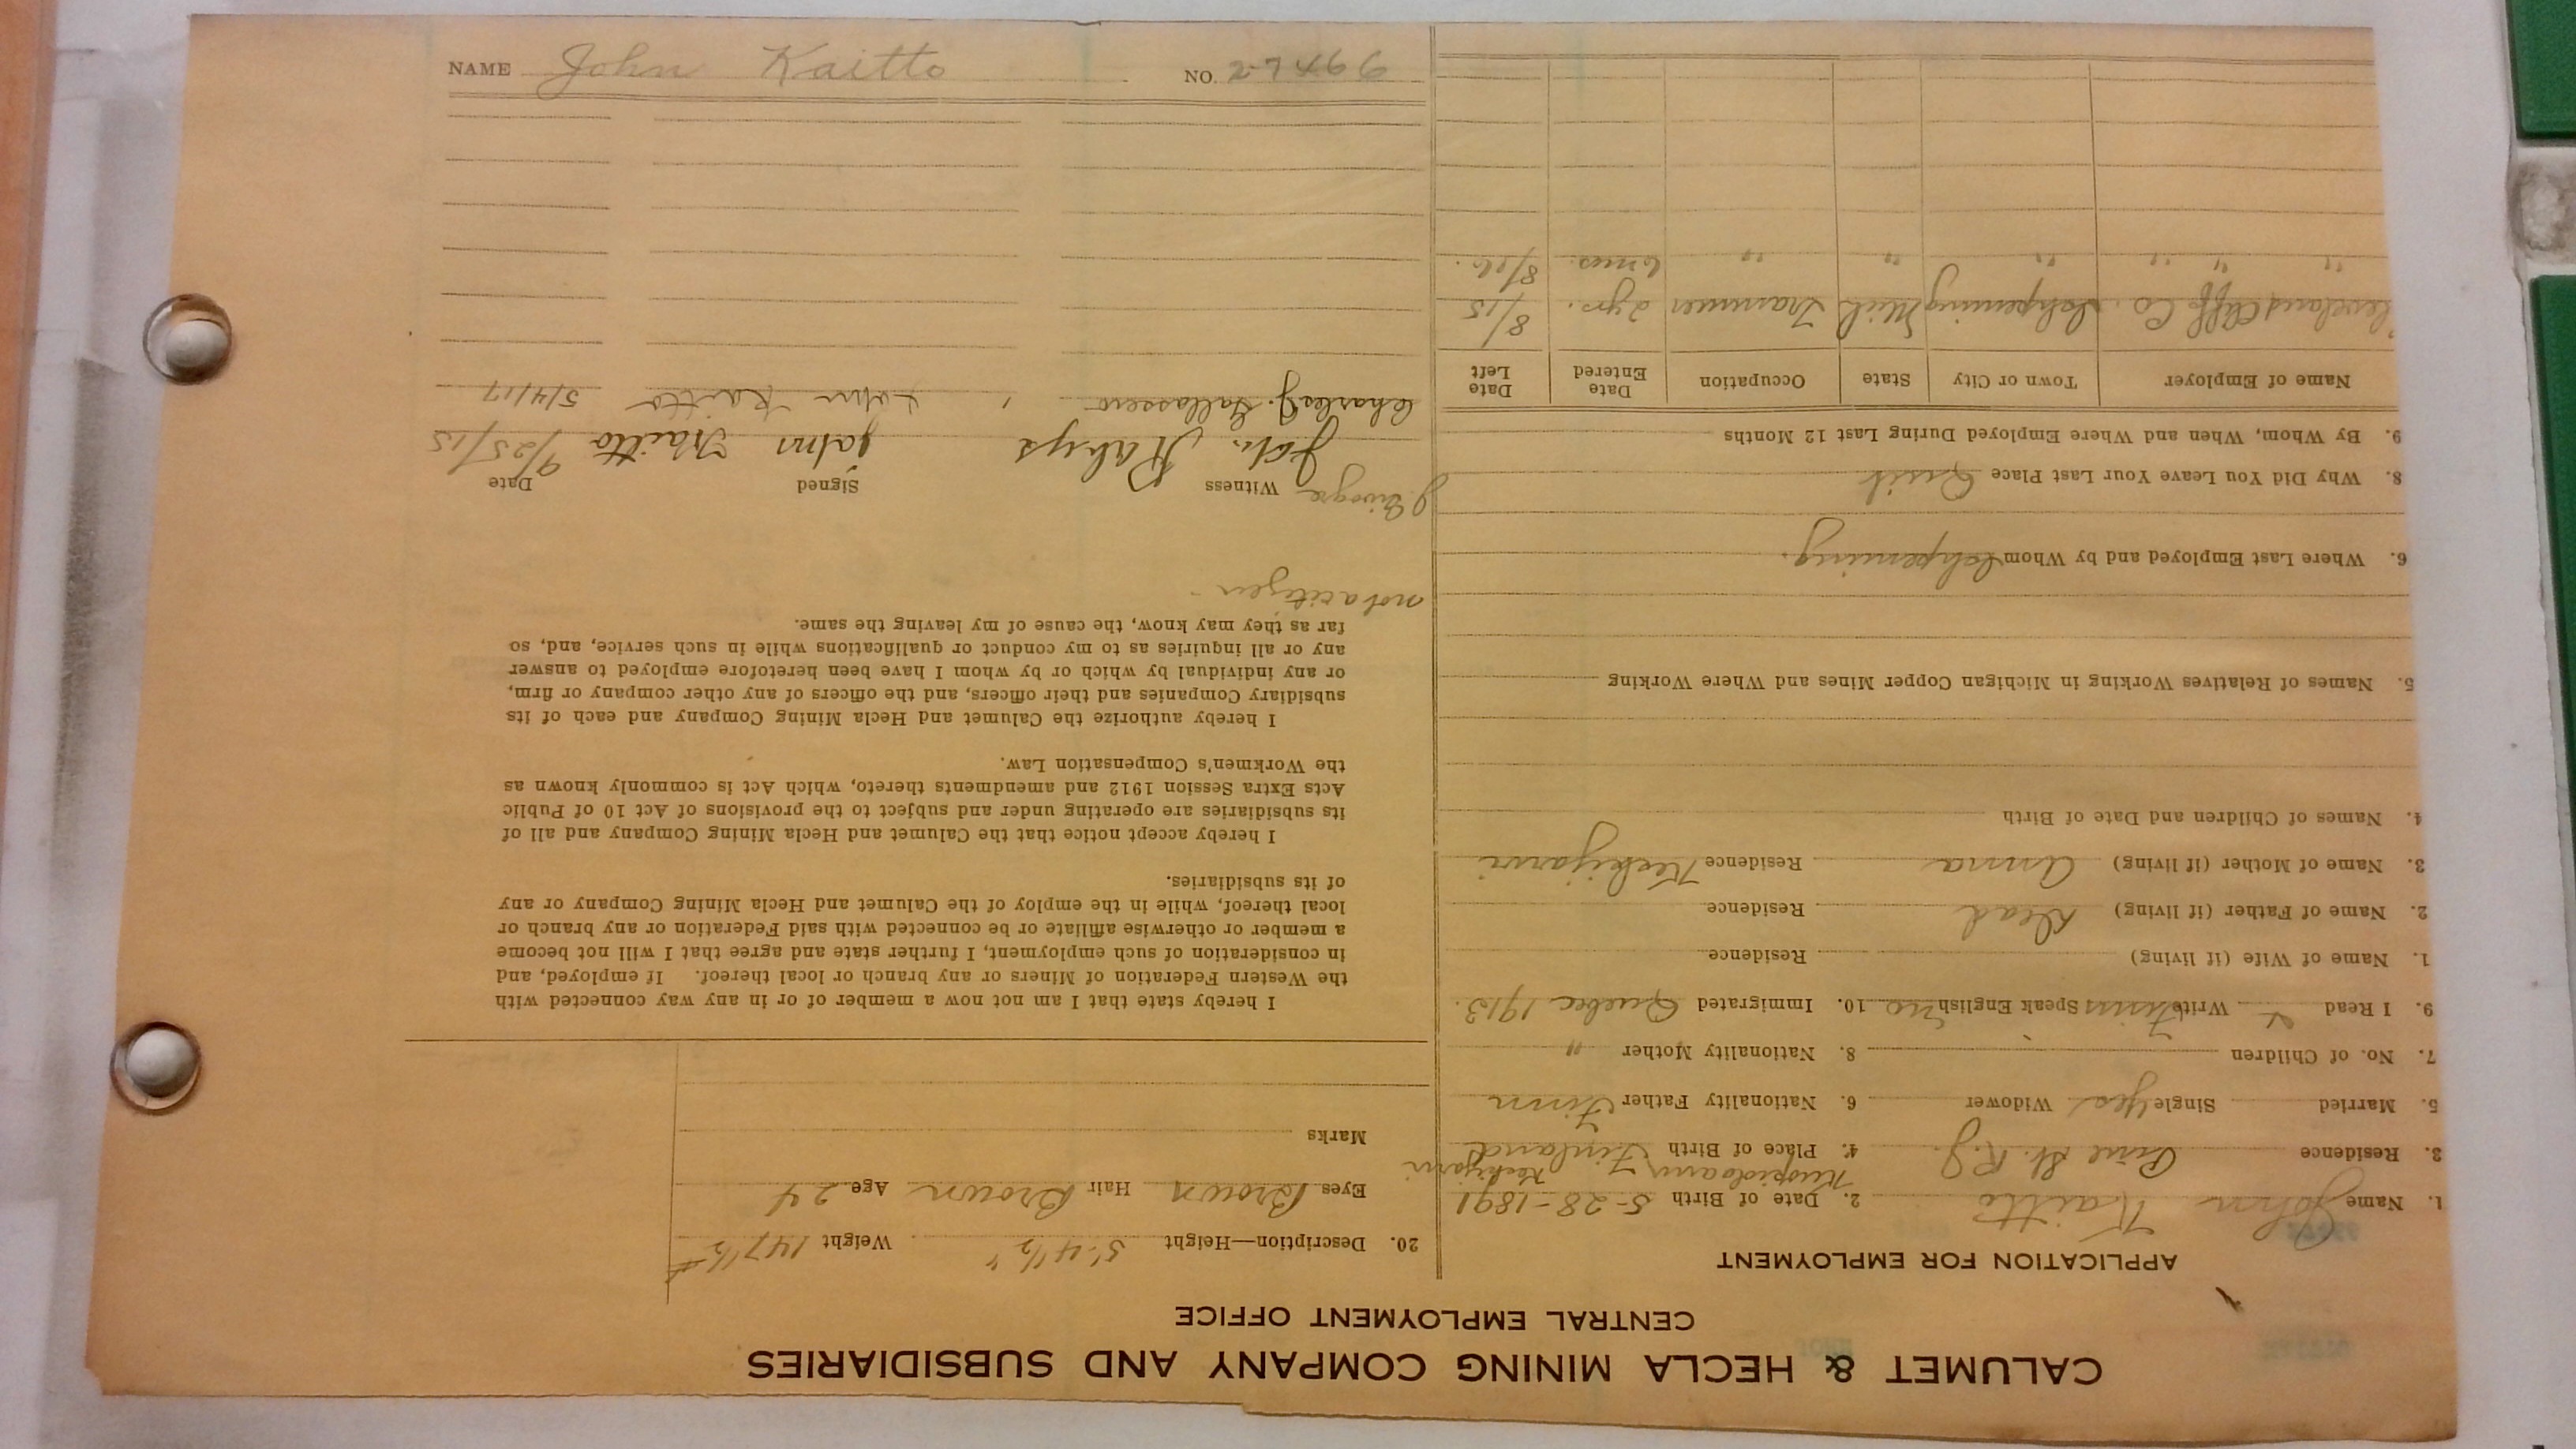 CALUMET & HECLA MINING COMPANY AND SUBSIDIARIES
CENTRAL EMPLOYMENT OFFICE
APPLICATION FOR EMPLOYMENT
1. Name John Kaitto 2. Date of Birth 5-28-1891
3. Residence Pine St. R.J. 4. Place of Birth Finland
5. Married Single Yes Widower 6. Nationality Father Finn
7. No. of Children 8. Nationality Mother "
9. I Read & Write Finnish Speak English no 10. Immigrated Quebec 1913.
1. Name of Wife (if living) Residence
2. Name of Father (if living) Dead Residence
3. Name of Mother (if living) Anna Residence Keskijarvi
4. Names of Children and Date of Birth
5. Names of Relatives Working in Michigan Copper Mines and Where Working
6. Where Last Employed and by Whom Ishpeming.
8. Why Did You Leave Your Last Place Quit
9. By Whom, When and Where Employed During Last 12 Months
Name of Employer Town or City State Occupation Date Entered Date Left
Cleveland Cliff Co. Ishpeming Mich Trammer 2 yrs. 8/15
" " " " " " 6 mos. 8/16.
20. Description—Height 5'-4 1/2" Weight 147 1/2 #
Eyes Brown Hair Brown Age 24
Marks
I hereby state that I am not now a member of or in any way connected with
the Western Federation of Miners or any branch or local thereof. If employed, and
in consideration of such employment, I further state and agree that I will not become
a member or otherwise affiliate or be connected with said Federation or any branch or
local thereof, while in the employ of the Calumet and Hecla Mining Company or any
of its subsidiaries.
I hereby accept notice that the Calumet and Hecla Mining Company and all of
its subsidiaries are operating under and subject to the provisions of Act 10 of Public
Acts Extra Session 1912 and amendments thereto, which Act is commonly known as
the Workmen's Compensation Law.
I hereby authorize the Calumet and Hecla Mining Company and each of its
subsidiary Companies and their officers, and the officers of any other company or firm,
or any individual by which or by whom I have been heretofore employed to answer
any or all inquiries as to my conduct or qualifications while in such service, and, so
far as they may know, the cause of my leaving the same.
not a citizen
Witness Signed Date
John Kaitto 9/25/15
Charles J. John Kaitto 5/4/17
NAME John Kaitto NO. 27466